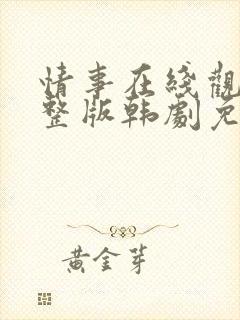 情事在綫觀
整版韩劇免
黄金芽